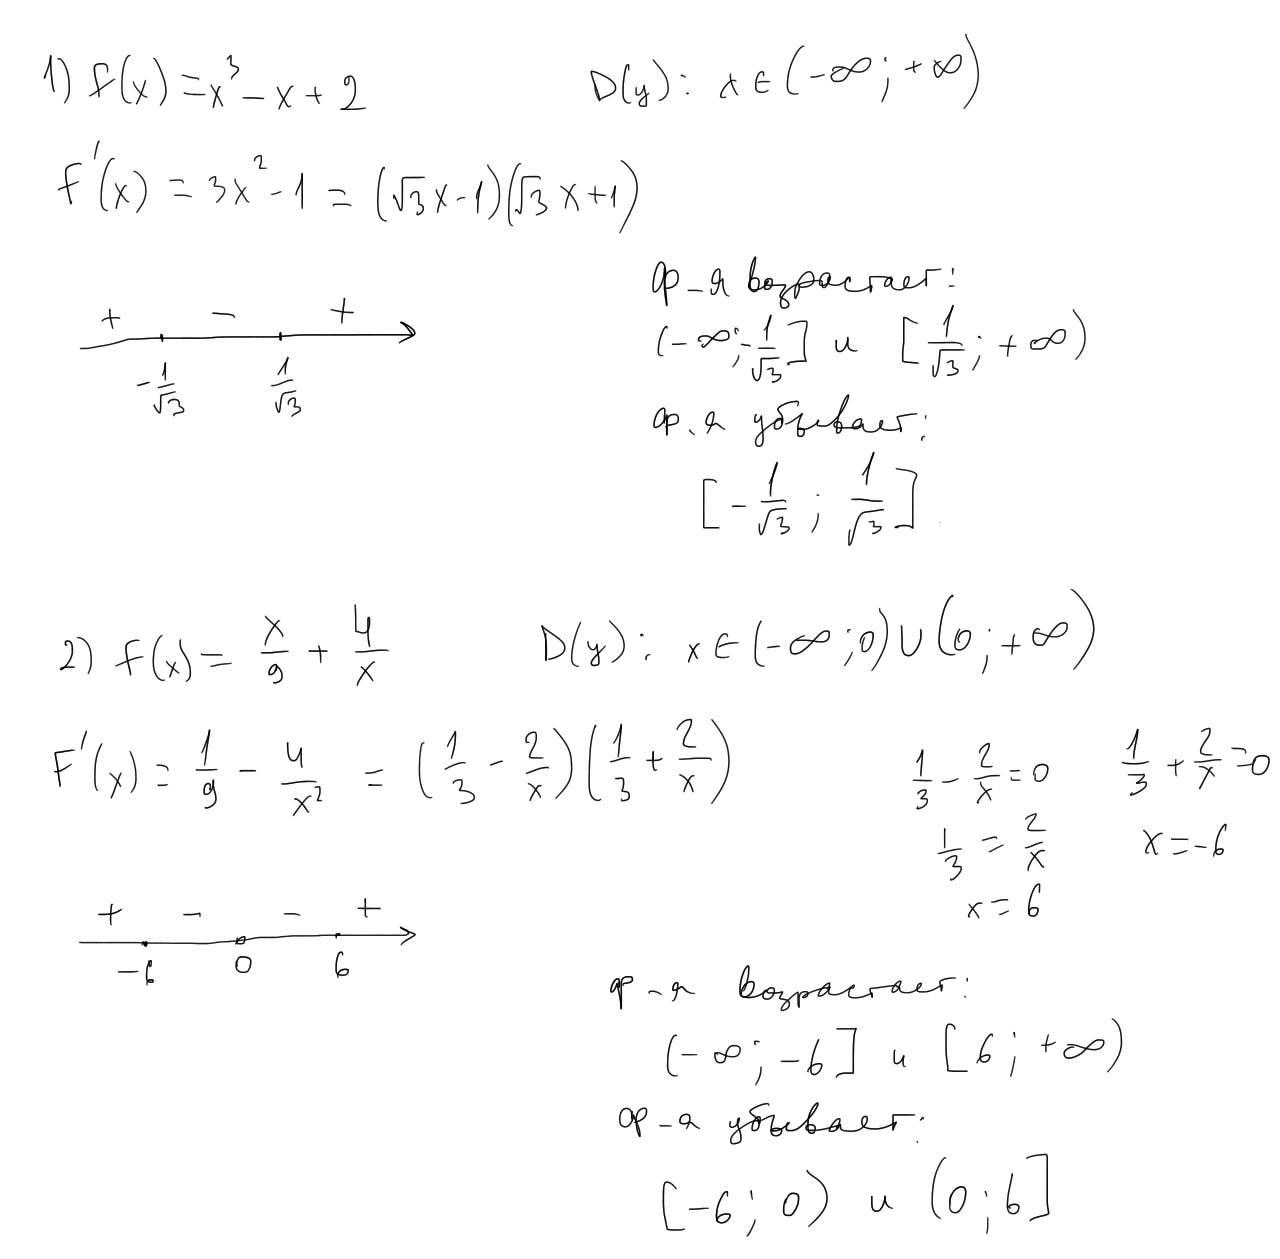 1) f(x) = x³ - x + 2 D(y): x ∈ (-∞; +∞)
f'(x) = 3x² - 1 = (√3x - 1)(√3x + 1)
ф-я возрастает:
+ - +
(-∞; -1/√3] и [1/√3; +∞)
-1/√3 1/√3
ф-я убывает:
[-1/√3; 1/√3]
2) f(x) = x/9 + 4/x D(y): x ∈ (-∞; 0) ∪ (0; +∞)
F'(x) = 1/9 - 4/x² = (1/3 - 2/x)(1/3 + 2/x)
1/3 - 2/x = 0 1/3 + 2/x = 0
1/3 = 2/x x = -6
x = 6
+ - - +
-6 0 6
ф-я возрастает:
(-∞; -6] и [6; +∞)
ф-я убывает:
[-6; 0) и (0; 6]